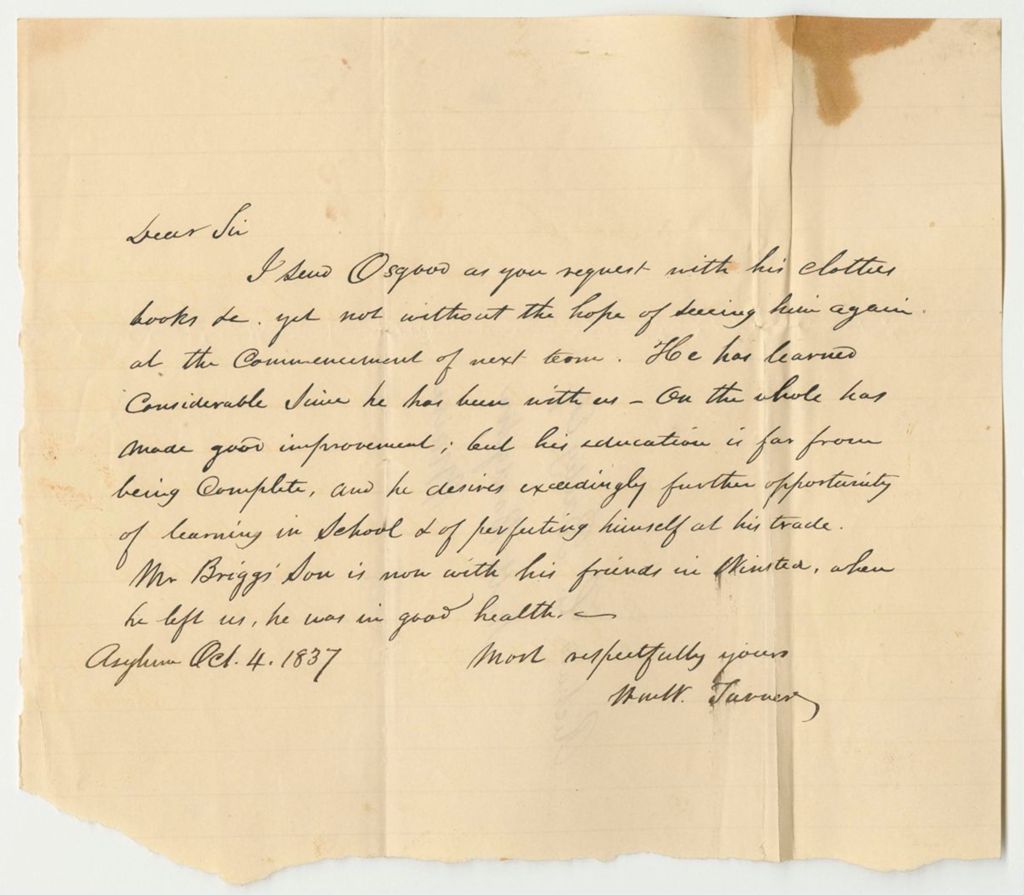 Dear Sir
I send Osgood as you request with his clothes
books &c. yet not without the hope of seeing him again
at the Commencement of next term. He has learned
Considerable Since he has been with us – On the whole has
made good improvement; but his education is far from
being Complete, and he desires exceedingly further opportunity
of learning in School & of perfecting himself at his trade.
Mr Briggs' Son is now with his friends in Winsted, when
he left us, he was in good health. –
Asylum Oct. 4. 1837
Most respectfully yours
Wm W. Turner